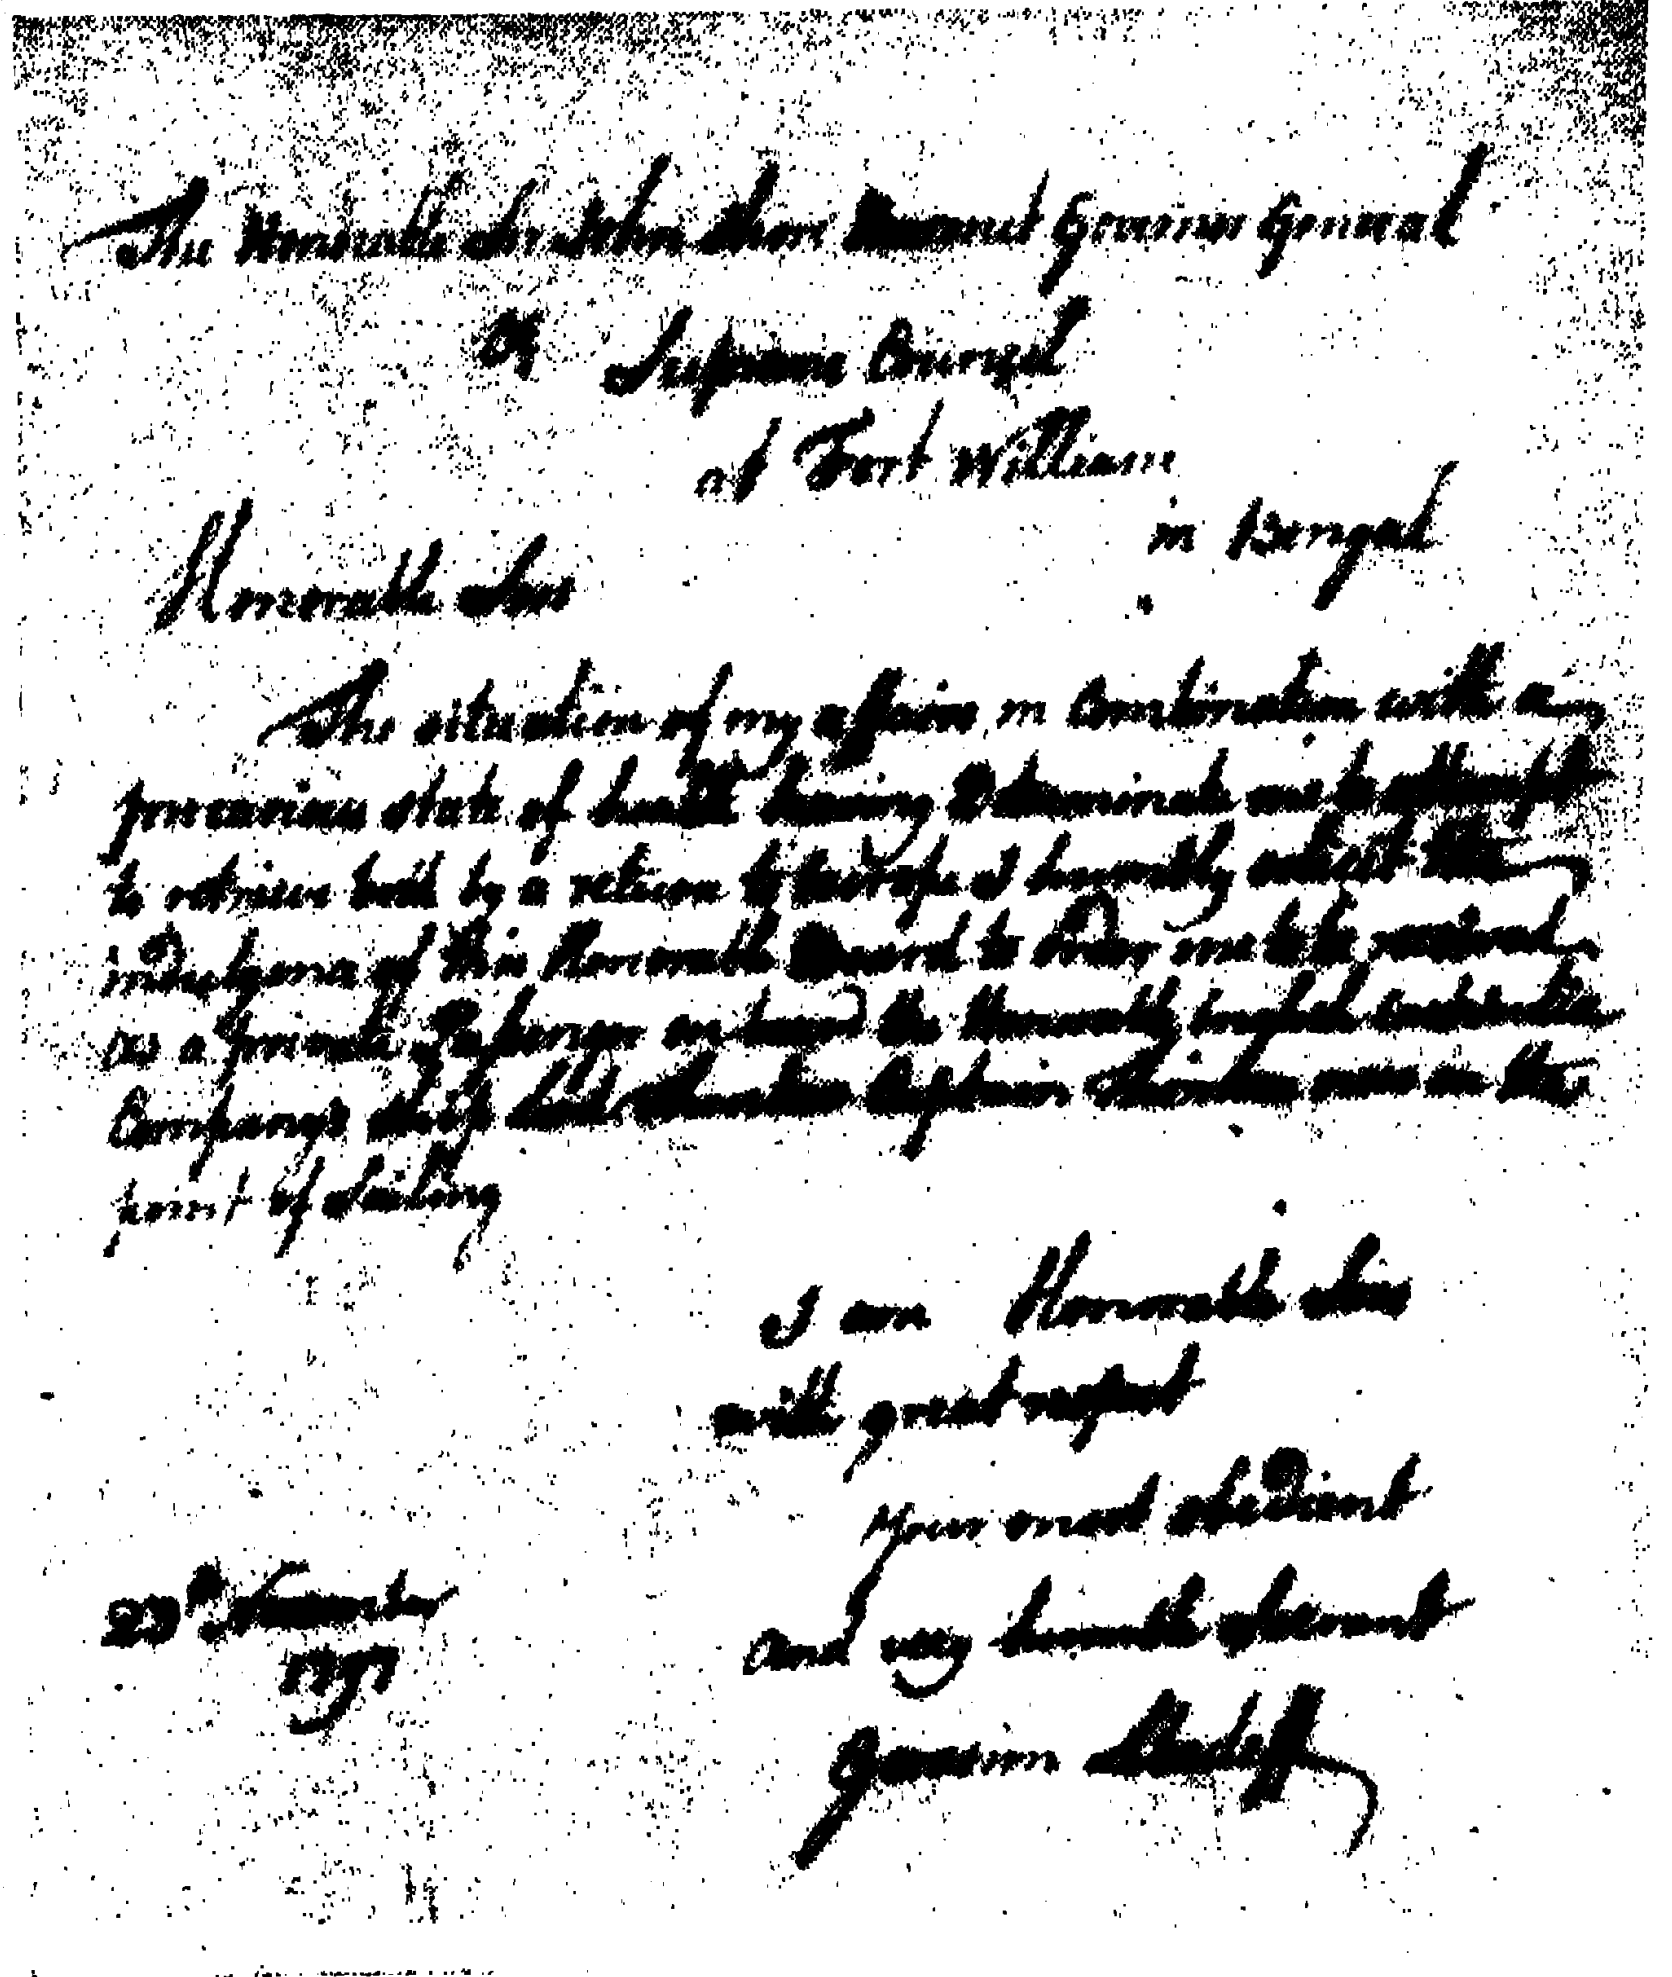 The Honorable Sir John Shore Baronet Governor General
Of Supreme Council
at Fort William
in Bengal
Honorable Sir
The situation of my affairs in Combination with a
precarious state of health having Determinate me to attempt
to retrieve both by a return to Europe I humbly solicit the
indulgence of this Honorable Board to order me to be received
as a private Passenger on board the Honorable English East India
Company's ship Lord Thurlow Captain Thomson now on the
point of Sailing
I am Honorable Sir
with great respect
Your most obedient
and very humble Servant
23th November
1797
Gerasim Lebedeff